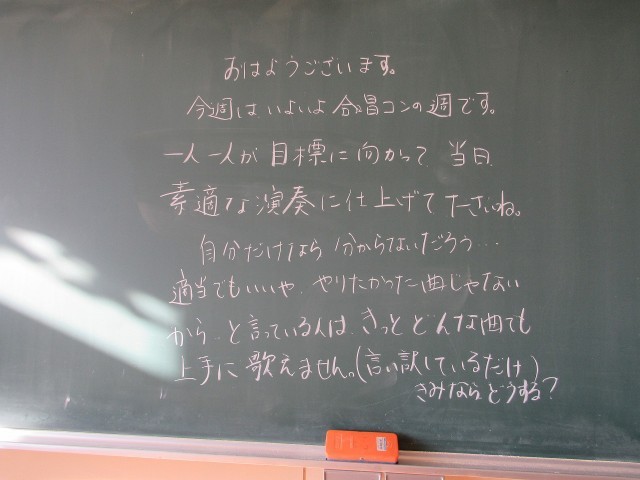 おはようございます。
今週はいよいよ合唱コンの週です。
一人一人が目標に向かって、当日、
素適な演奏に仕上げて下さいね。
自分だけなら分からないだろう…
適当でもいいや、やりたかった曲じゃない
から、と言っている人は、きっとどんな曲でも
上手に歌えません。(言い訳しているだけ)
きみならどうする?